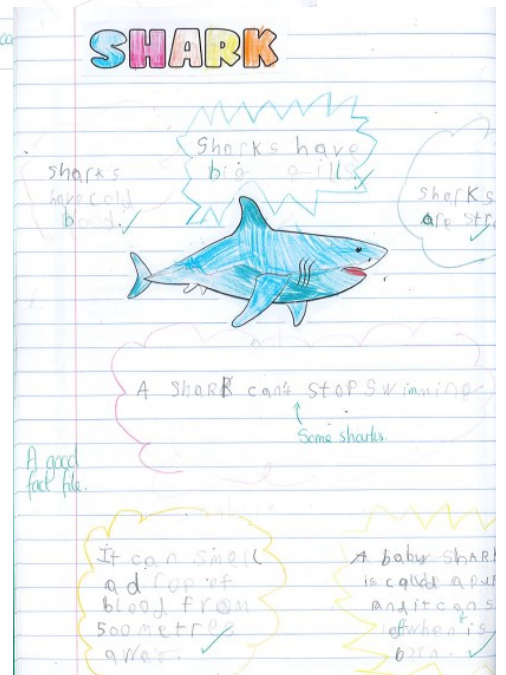 SHARK
Sharks have
big gills.
sharks
have cold
blood.
sharks
are str
A shark can't stop swimming
Some sharks.
A good
fact file.
It can smell
a drop of
blood from
500 metres
away.
A baby shark
is called a pup
and it can s
off when it is
born.